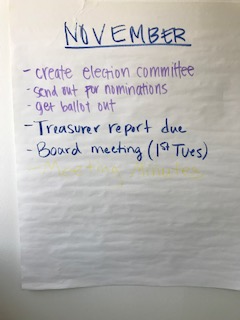 NOVEMBER
- create election committee
- send out for nominations
- get ballot out
- Treasurer report due
- Board meeting (1st Tues)